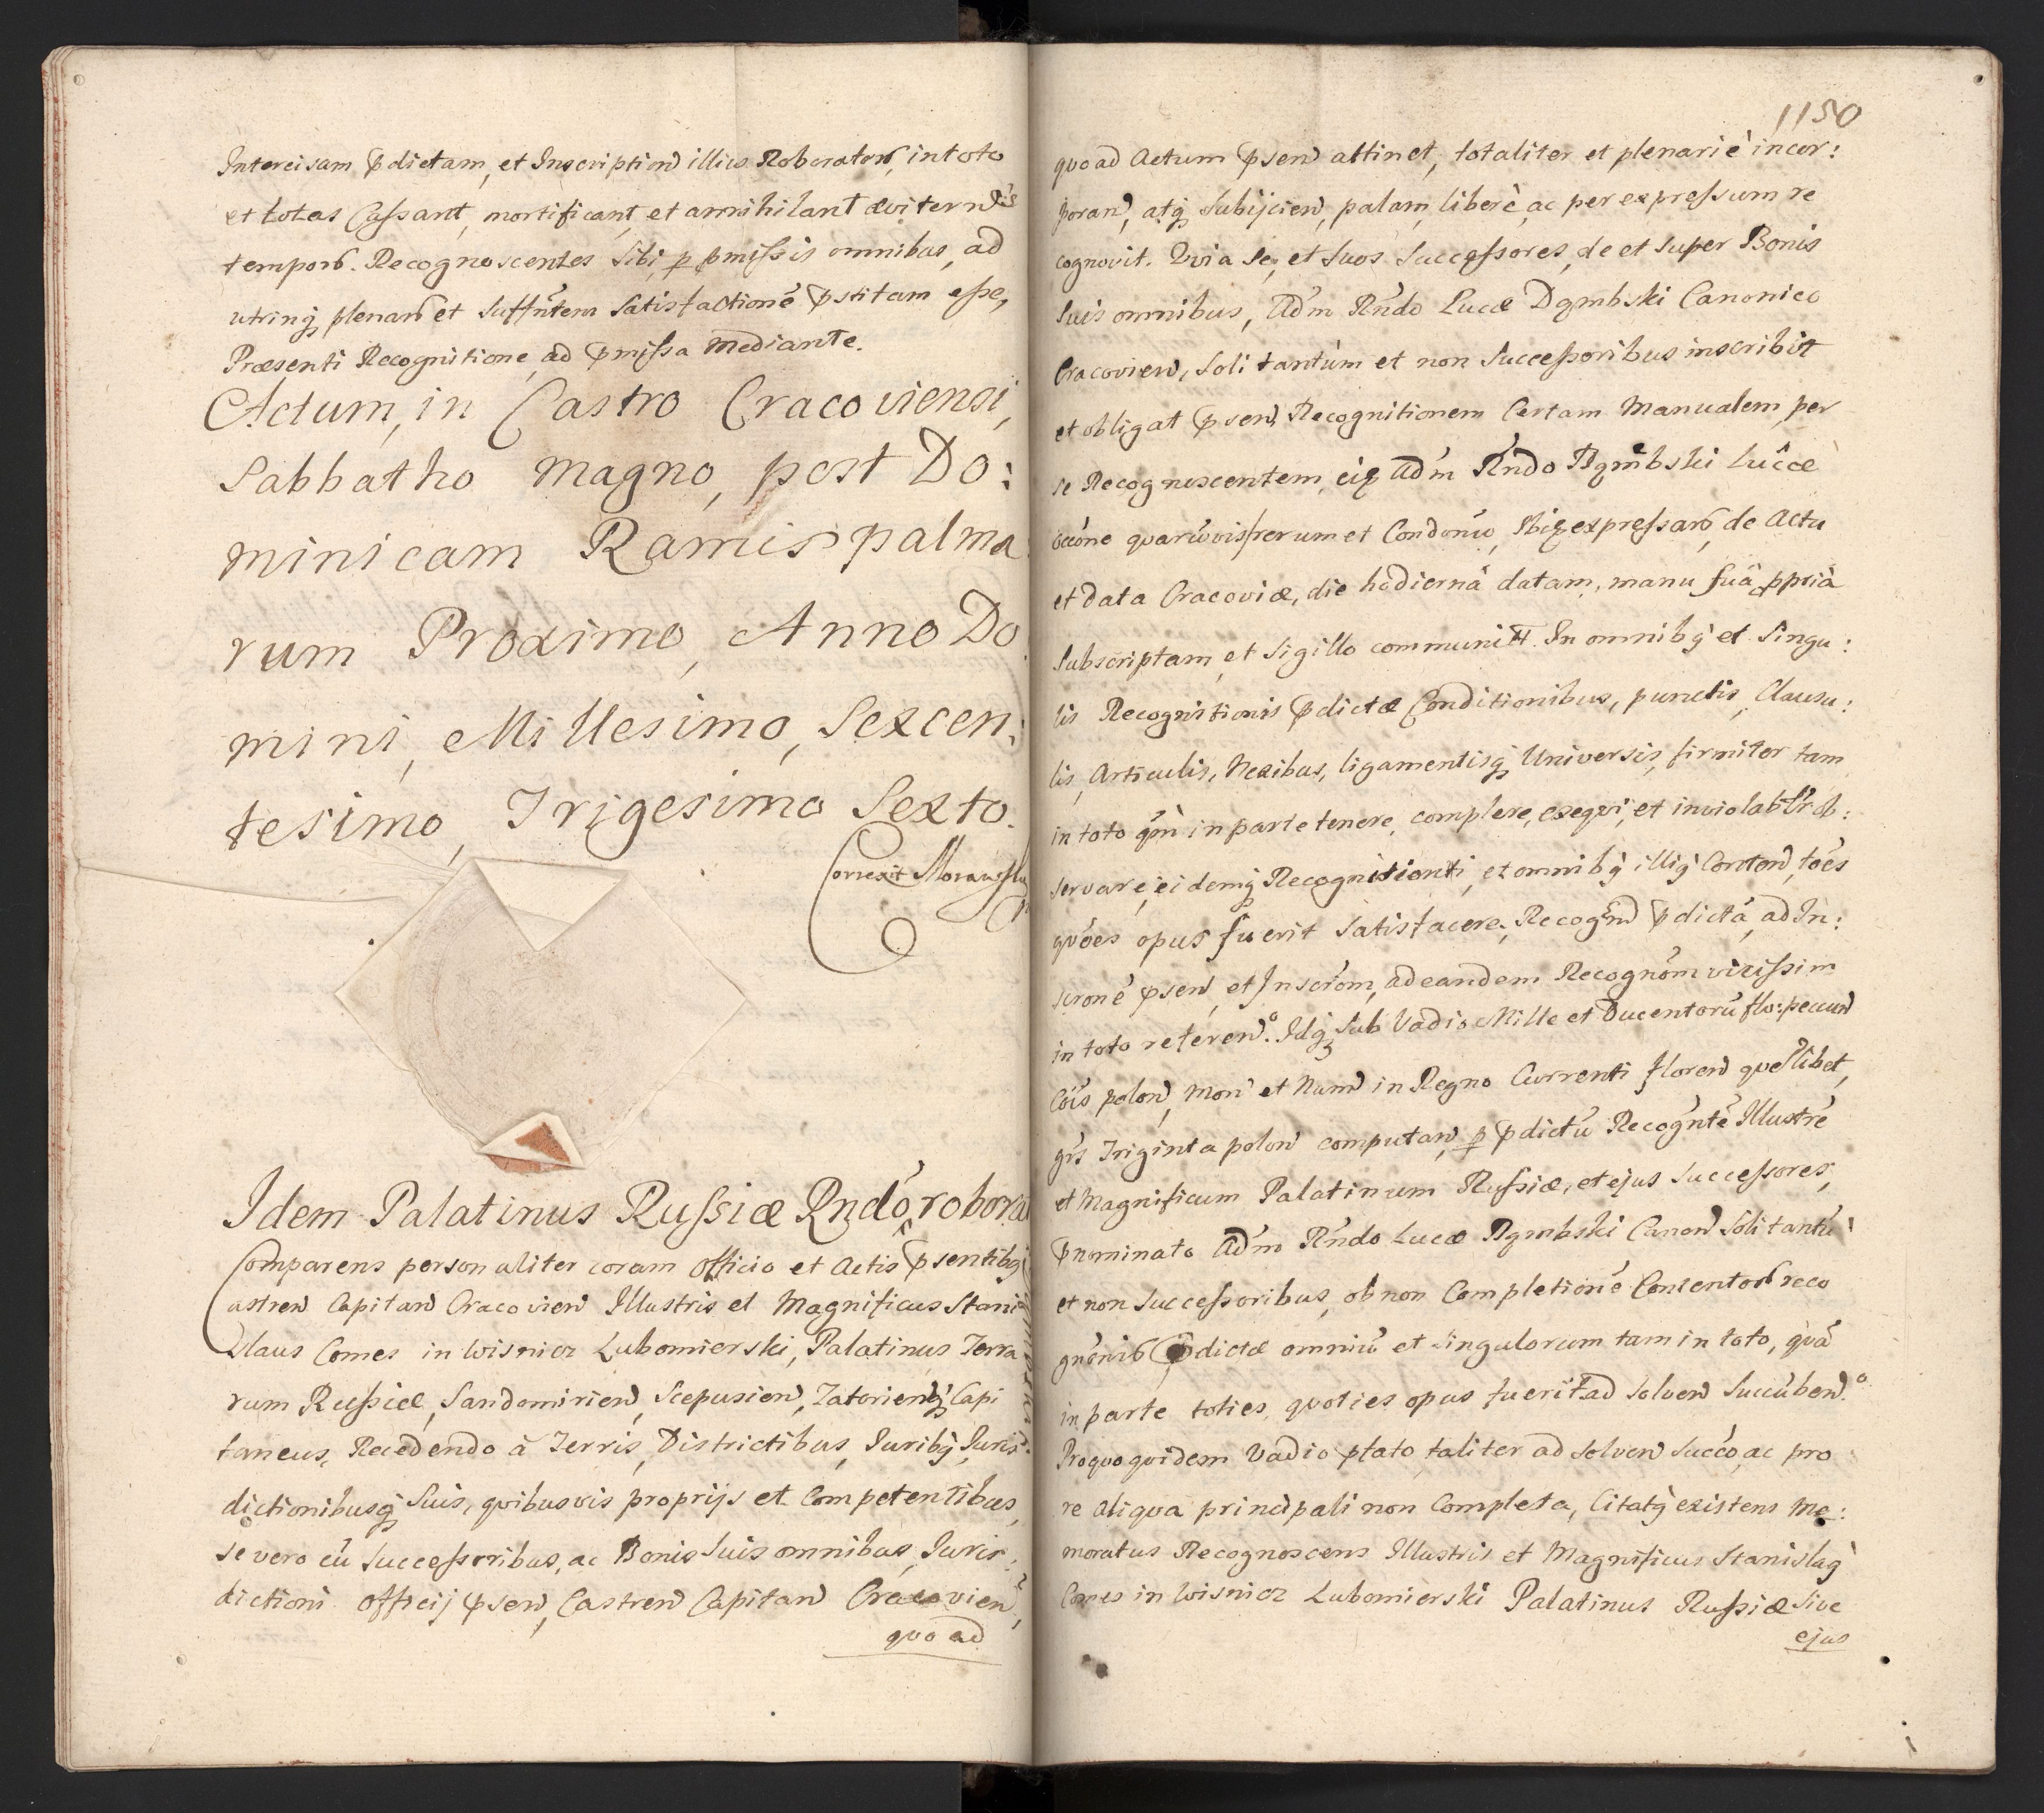 Intercisam pdictam, et Inscription illius Roborator, in toto
et totas Cassant, mortificant, et annihilant æviternis
tempor. Recognoscentes sibi, p pmissis omnibus, ad
utrinq plenar et suffntem satisfactionē pstitam esse,
Præsenti Recognitione, ad pmissa mediante.
Actum, in Castro Cracoviensi,
Sabbatho magno, post Do:
minicam Ramis palma
rum Proximo, Anno Do
mini, Millesimo, Sexcen:
tesimo, Trigesimo Sexto.
Correxit
Idem Palatinus Russiæ Rndo robora
Comparens personaliter coram officio et Actis psentibq
astren Capitan Cracovien Illustris et Magnificus Stani
slaus Comes in Wisnicz Lubomierski, Palatinus Terra
rum Russiæ, Sandomirien, Scepusien, Zatorienq Capi
taneus, Recedendo à Terris, Districtibus, Juribq, Juris
dictionibusq suis, quibusvis proprijs et Competentibus,
se vero cū successoribus, ac Bonis suis omnibus, Juris:
dictioni officij psen, Castren Capitan Cracovien,
quo ad
1150
quo ad Actum psen attinet, totaliter et plenariè incor:
poran, atq subijcien, palam, liberè, ac per expressum re
cognovit. Quia se, et suos successores, de et super Bonis
suis omnibus, Adm Rndo Lucæ Dąmbski Canonico
Cracovien, soli tantùm et non successoribus inscribit
et obligat psen Recognitionem Certam Manualem, per
se Recognoscentem, eiq Adm Rndo Dąmbski Lucæ
rone quarūvis rerum et Condonū, Ibiq expressar, de Actu
et data Cracoviæ, die hodiernâ datam, manu suâ ppriâ
subscriptam, et sigillo communit. In omnibq et singu:
lis Recognitionis pdictæ Conditionibus, punctis, Clausu:
lis, Articulis, Nexibus, ligamentisq Universis, firmiter tam
in toto qm in parte tenere, complere, exequi, et inviolablr ob:
servare, eidemq Recognitionti, et omnibq illiq Conton, toēs
quoēs opus fuerit satisfacere, Recogn pdictā, ad In:
scronē psen, et Inscrom, ad eandem Recognom vicissim
in toto referen. Idq sub Vadio Mille et Ducentorū flo: pecun
Cois polon, mon et Num in Regno Currenti floren quēlibet,
grs Triginta polon computan, p pdictū Recogntē Illustrē
et Magnificum Palatinum Russiæ, et ejus successores,
pnominato Adm Rndo Lucæ Dąmbski Canon soli tantū
et non successoribus, ob non Completionē Contentor reco
gnōnis pdictæ omniū et singulorum tam in toto, quā
in parte toties, quoties opus fuerit ad solven succuben.
Pro quo quidem Vadio ptato taliter ad solven Succo, ac pro
re aliqua principali non Completa, Citatq existens me:
moratus Recognoscens Illustris et Magnificus Stanislaq
Comes in Wisnicz Lubomierski Palatinus Russiæ sive
ejus